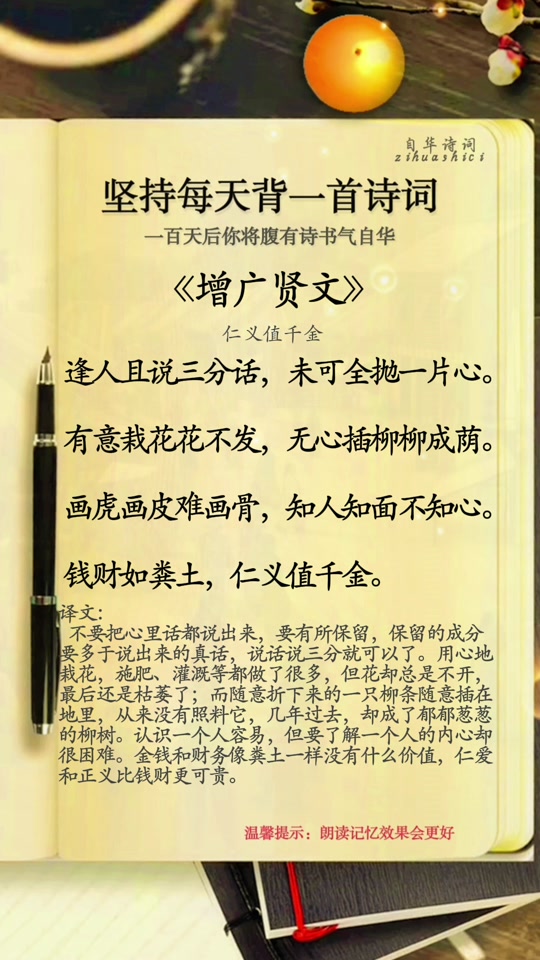 自华诗词
zihuashici
坚持每天背一首诗词
一百天后你将腹有诗书气自华
《增广贤文》
仁义值千金
逢人且说三分话，未可全抛一片心。
有意栽花花不发，无心插柳柳成荫。
画虎画皮难画骨，知人知面不知心。
钱财如粪土，仁义值千金。
译文：
不要把心里话都说出来，要有所保留，保留的成分
要多于说出来的真话，说话说三分就可以了。用心地
栽花，施肥、灌溉等都做了很多，但花却总是不开，
最后还是枯萎了；而随意折下来的一只柳条随意插在
地里，从来没有照料它，几年过去，却成了郁郁葱葱
的柳树。认识一个人容易，但要了解一个人的内心却
很困难。金钱和财务像粪土一样没有什么价值，仁爱
和正义比钱财更可贵。
温馨提示：朗读记忆效果会更好